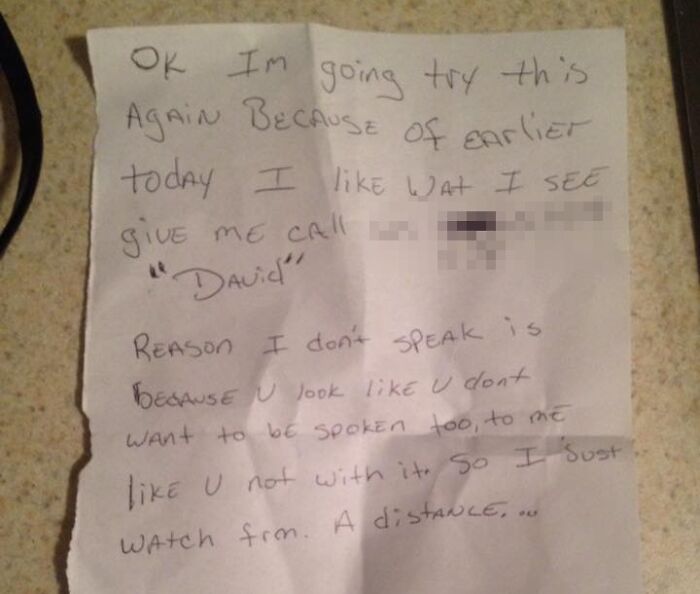 OK Im going try this
AGAIN BECAUSE OF EARliER
today I like WAt I SEE
giVE ME CAll
"DAvid"
REASON I don't SPEAK is
bECAUSE U look likE U dont
WANt to bE SPOKEN too, to mE
likE U not with it. SO I Just
WAtch frm. A distANCE...